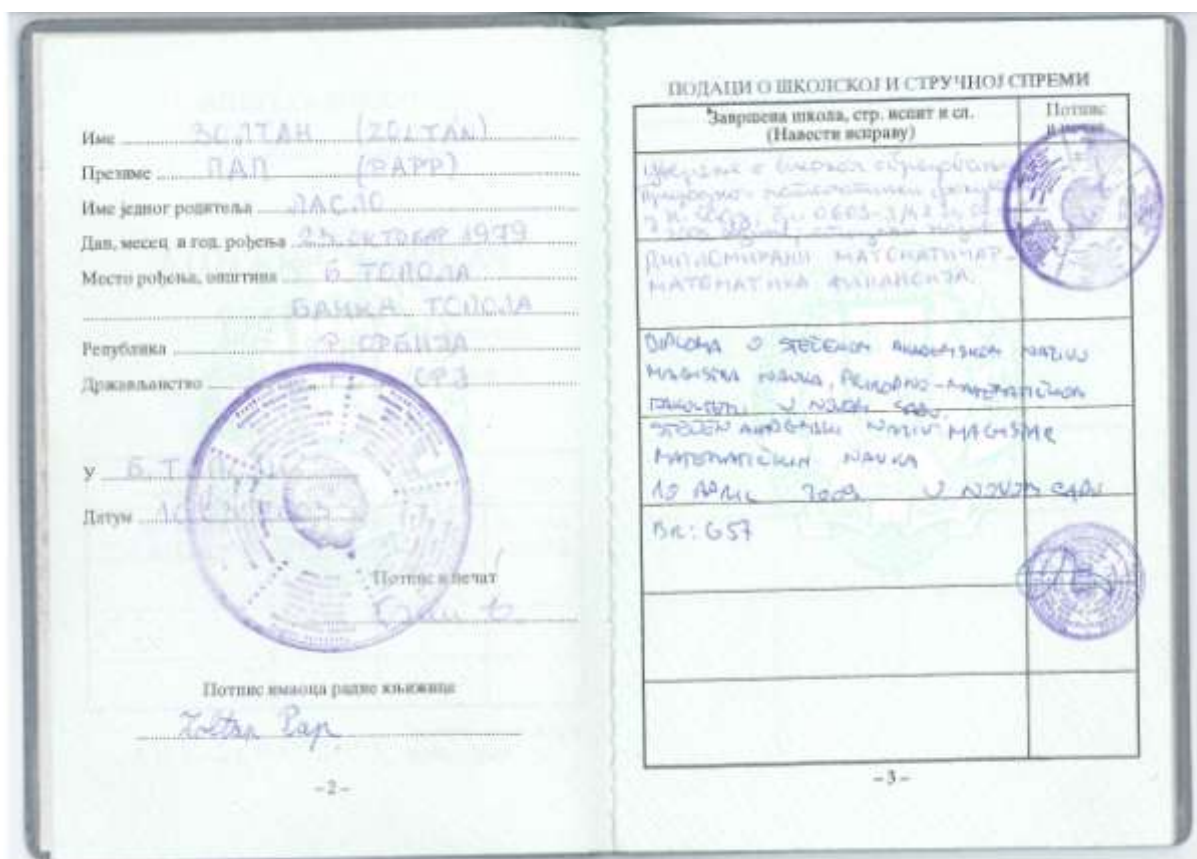 Име ЗОЛТАН (ZOLTAN)
Презиме ПАП (PAPP)
Име једног родитеља ЛАСЛО
Дан, месец и год. рођења 23. ОКТОБАР 1979
Место рођења, општина Б. ТОПОЛА
БАЧКА ТОПОЛА
Република Р. СРБИЈА
Држављанство СРЈ
У Б.
Датум
Потпис и печат
Потпис имаоца радне књижице
Zoltan Pap
– 2 –
ПОДАЦИ О ШКОЛСКОЈ И СТРУЧНОЈ СПРЕМИ
Завршена школа, стр. испит и сл.
(Навести исправу)
Потпис
и печат
Уверење о високом образовању
ДИПЛОМИРАНИ МАТЕМАТИЧАР-
МАТЕМАТИКА ФИНАНСИЈА.
DIPLOMA O STEČENOM AKADEMSKOM NAZIVU
MAGISTRA NAUKA, PRIRODNO-MATEMATIČKOM
FAKULTETU U NOVOM SADU.
STEČEN AKADEMSKI NAZIV MAGISTAR
MATEMATIČKIH NAUKA
10 APRIL 2009. U NOVOM SADU
BR: 657
– 3 –